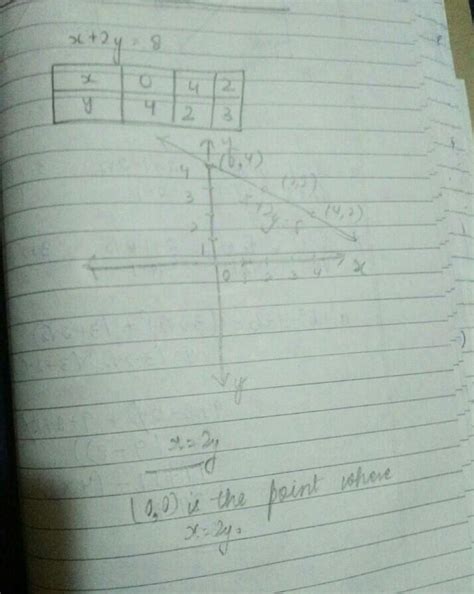 x+2y=8
x 0 4 2
y 4 2 3
y
(0,4)
4
3
2
1
(4,2)
0 1 2 3 4 x
y
x=2y
(0,0) is the point where
x=2y.